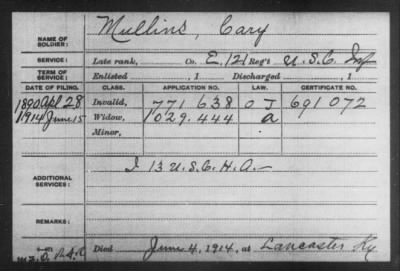 Mullins, Cary
NAME OF SOLDIER:
SERVICE: Late rank, Co. E, 121 Reg't U.S.C. Inf
TERM OF SERVICE: Enlisted , 1 Discharged , 1
DATE OF FILING. CLASS. APPLICATION NO. LAW. CERTIFICATE NO.
1890 Apl 28 Invalid, 771 638 O J 691 072
1914 June 15 Widow, 1029.444 a
Minor,
ADDITIONAL SERVICES: I 13 U.S.C.H.A.
REMARKS:
Died June 4, 1914, at Lancaster Ky